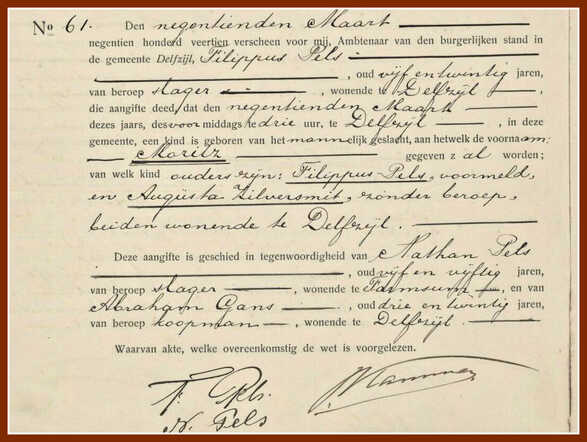 No 61. Den negentienden Maart
negentien honderd veertien verscheen voor mij, Ambtenaar van den burgerlijken stand in
de gemeente Delfzijl, Filippus Pels
, oud vijf en twintig jaren,
van beroep slager, wonende te Delfzijl,
die aangifte deed, dat den negentienden Maart
dezes jaars, des voor middags te drie uur, te Delfzijl, in deze
gemeente, een kind is geboren van het mannelijk geslacht, aan hetwelk de voornaam:
Moritz gegeven z al worden;
van welk kind ouders zijn: Filippus Pels, voormeld,
en Augusta Zilversmit, zonder beroep,
beiden wonende te Delfzijl.
Deze aangifte is geschied in tegenwoordigheid van Nathan Pels
, oud vijf en vijftig jaren,
van beroep slager, wonende te Farmsum, en van
Abraham Gans, oud drie en twintig jaren,
van beroep koopman, wonende te Delfzijl.
Waarvan akte, welke overeenkomstig de wet is voorgelezen.
F. Pels.
N. Pels